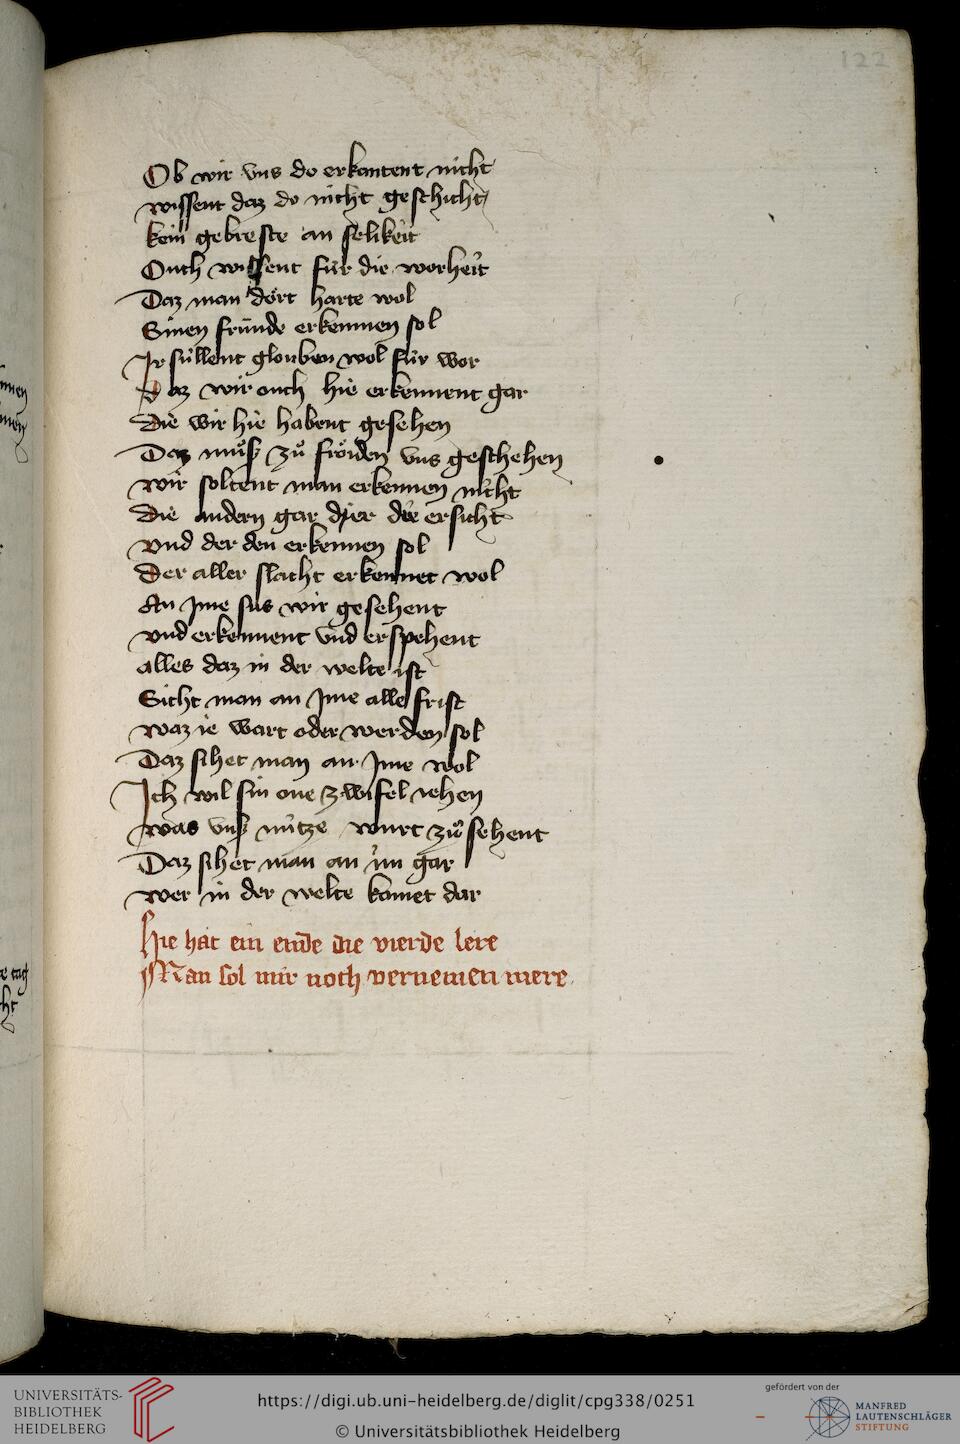 122
Ob wir vns do erkantent nicht
wissent daz do nicht geschicht
kein gebreste an selikeit
Ouch wissent für die worheit
Daz man dört harte wol
Sinen fründe erkennen sol
Ir süllent glouben wol für wor
Daz wir ouch hie erkennent gar
Die wir hie habent gesehen
Daz muͦß zuͦ fröiden vns geschehen
wir soltent man erkennen nicht
Die andern gar der ersicht
vnd der den erkennen sol
Der aller slacht erkennet wol
An Ime sus wir gesehent
vnd erkennent vnd erspehent
alles daz in der welte ist
Sicht man an Ime alle frist
waz ie wart oder werden sol
Daz sihet man an Ime wol
Ich wil sin one zwifel iehen
was vnß nütze wurt zuͦ sehent
Daz sihet man an im gar
wer in der welte komet dar
Hie hat ein ende die vierde lere
Man sol mir noch vernemen mere
UNIVERSITÄTS-
BIBLIOTHEK
HEIDELBERG
https://digi.ub.uni-heidelberg.de/diglit/cpg338/0251
© Universitätsbibliothek Heidelberg
gefördert von der
MANFRED
LAUTENSCHLÄGER
STIFTUNG